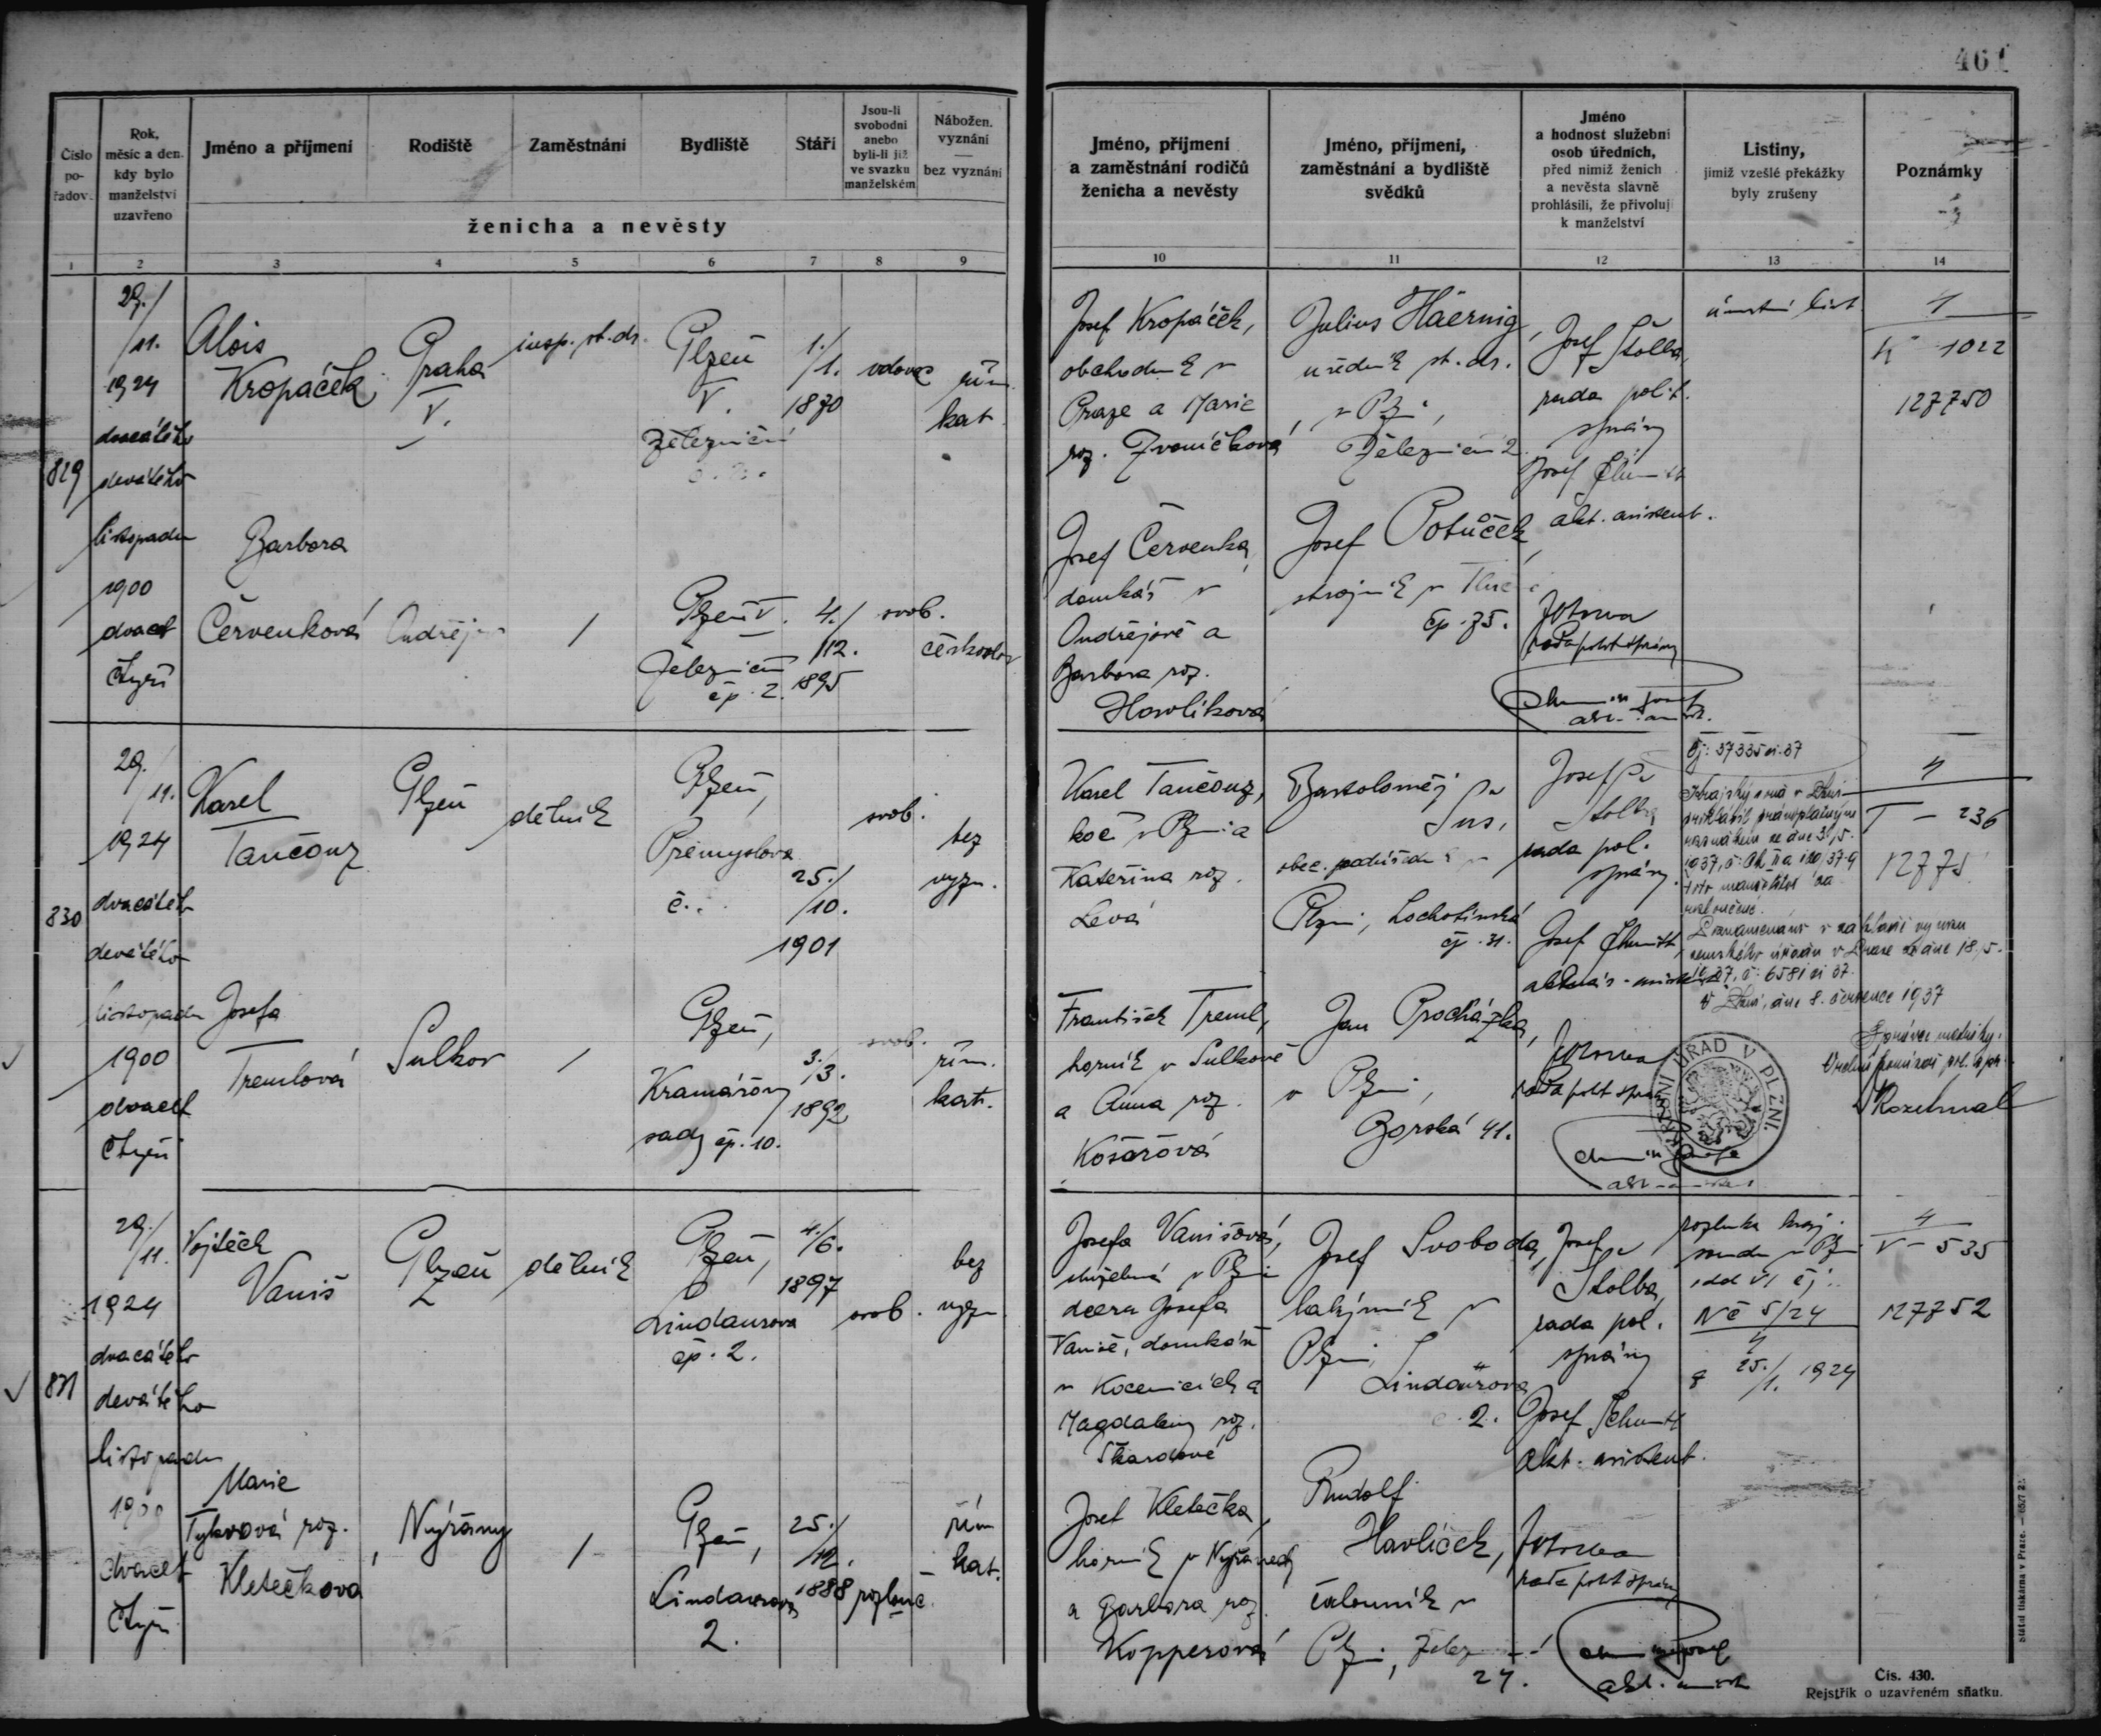 461
Číslo
po-
řadov.
Rok,
měsíc a den.
kdy bylo
manželství
uzavřeno
Jméno a příjmení
Rodiště
Zaměstnání
Bydliště
Stáří
Jsou-li
svobodni
anebo
byli-li již
ve svazku
manželském
Nábožen.
vyznání
—
bez vyznání
ženicha a nevěsty
Jméno, příjmení
a zaměstnání rodičů
ženicha a nevěsty
Jméno, příjmení,
zaměstnání a bydliště
svědků
Jméno
a hodnost služební
osob úředních,
před nimiž ženich
a nevěsta slavně
prohlásili, že přivolují
k manželství
Listiny,
jimiž vzešlé překážky
byly zrušeny
Poznámky
1 2 3 4 5 6 7 8 9 10 11 12 13 14
829
29./
/11.
1924
dvacátého
devátého
listopadu
1900
dvacet
čtyři
Alois
Kropáček
Praha
V.
insp. st. dr.
Plzeň
V.
Železniční
1./
/1.
1870
vdovec
řím.
kat.
Josef Kropáček,
obchodník v
Praze a Marie
roz. Zvoníčková
Julius Häernig,
úředník st. dr.
v Plzni,
Železniční 2.
Josef Štolba,
rada polit.
správy
Josef
akt. asistent.
úmrtní list
4
K 1022
127750
Barbora
Červenková
Ondřejov
/
Plzeň V.
Železniční
čp. 2.
4./
/12.
1895
svob.
českoslov
Josef Červenka,
domkář v
Ondřejově a
Barbora roz.
Havlíková
Josef Potůček,
strojník v
čp. 75.
rada polit správy
830
29./
/11.
1924
dvacátého
devátého
listopadu
1900
dvacet
čtyři
Karel
Tančouz
Plzeň
dělník
Plzeň,
Přemyslova
č.
25./
/10.
1901
svob.
bez
vyzn.
Karel Tančouz,
kočí v Plzni a
Kateřina roz.
Levá
Bartoloměj
obec. v
Plzni, Lochotínská
čp. 31.
Josef
Štolba
rada pol.
správy.
Josef
čj: 37335
Krajský soud v Plzni
ze dne 3./5.
1937, č:
toto manželství za
rozloučené.
Poznamenáno v základě výnosu
zemského úřadu v Praze ze dne 18./5.
1937, č: 6581 ai 37.
V Plzni, dne 8. července 1937
4
T - 236
Správce matriky:
OKRESNÍ ÚŘAD V PLZNI.
Josefa
Tremlová
Sulkov
/
Plzeň,
Kramářovy
sady čp. 10.
3./
/3.
1892
svob.
řím.
kat.
František Treml,
horník v Sulkově
a Anna roz.
Košařová
Jan Procházka,
v Plzni,
Borská 41.
rada polit správy
831
29./
/11.
1924
dvacátého
devátého
listopadu
1900
dvacet
čtyři
Vojtěch
Vaniš
Plzeň
dělník
Plzeň,
Lindaurova
čp. 2.
4./
/6.
1897
svob.
bez
vyzn.
Josefa Vanišová,
služebná v Plzni
dcera Josefa
Vaniše, domkáře
v Kocenicích a
Magdaleny roz.
Škardové
Josef Svoboda,
v
Plzni,
Lindaurova
č. 2.
Josef
Štolba,
rada pol.
správy
Josef
akt. asistent.
rozluka kraj.
soudu v Plzni
odd VI čj:
Nč 5/24
4
z 25./1. 1924
4
V - 535
127752
Marie
Tykvová roz.
Kletečková
Nýřany
/
Plzeň,
Lindaurova
2.
25./
/12.
1888
rozlouč.
řím
kat.
Josef Kletečka,
horník v Nýřanech
a Barbora roz.
Kopperová
Rudolf
Havlíček,
čalouník v
Plzni,
24.
rada polit správy
Státní tiskárna v Praze.
Čís. 430.
Rejstřík o uzavřeném sňatku.